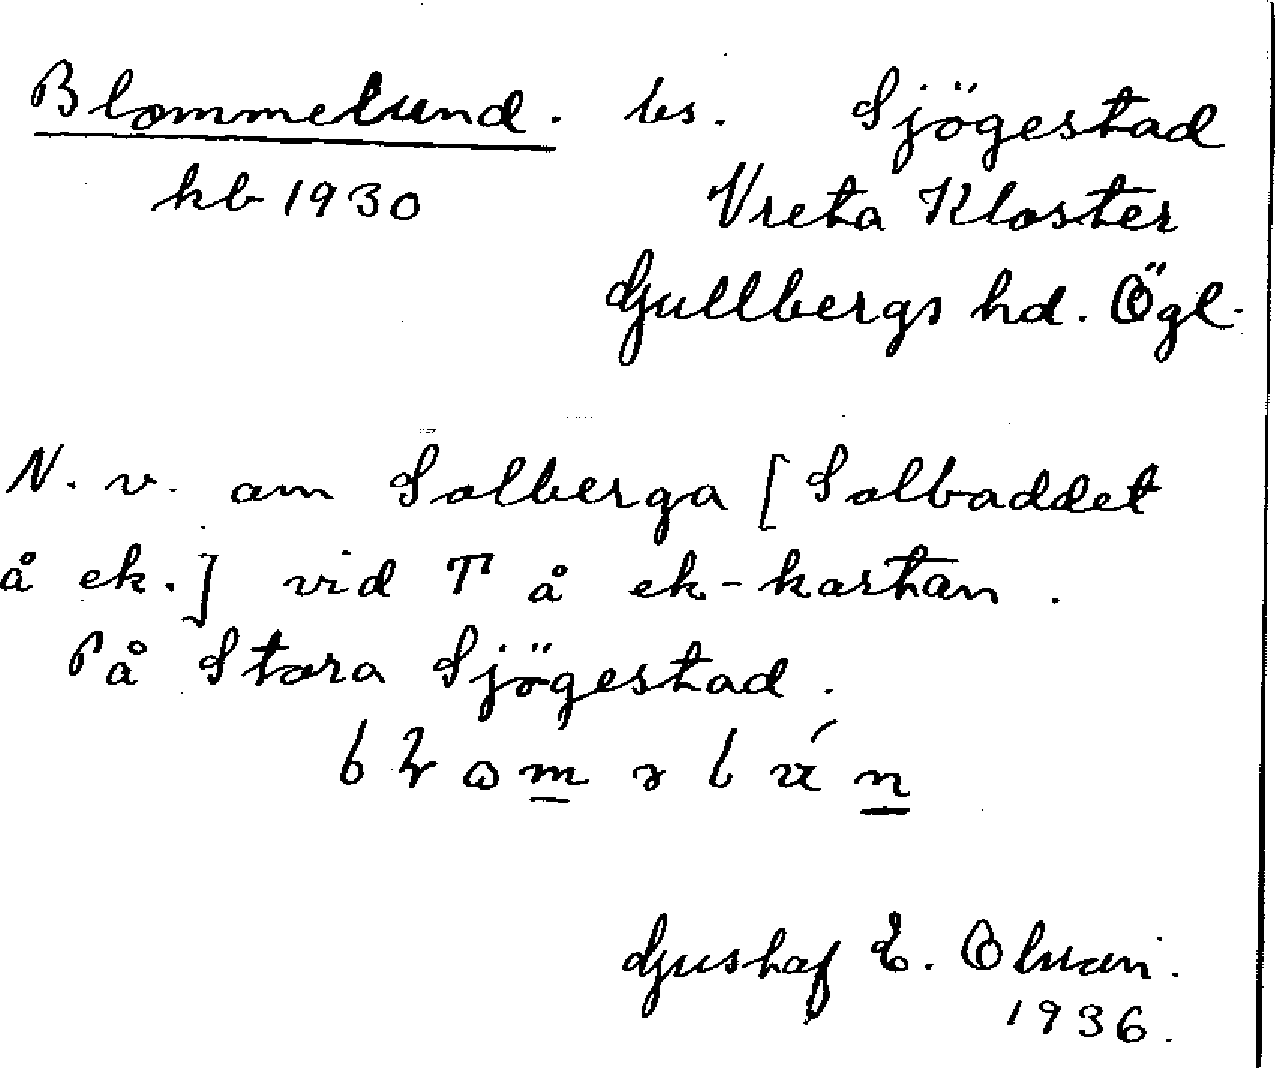 Blommelund. bs. Sjögestad
kb 1930 Vreta Kloster
Gullbergs hd. Ögl.
N. v. om Solberga [Solbaddet
å ek.] vid T å ek-kartan.
På Stora Sjögestad.
Gustaf E. Olsson.
1936.